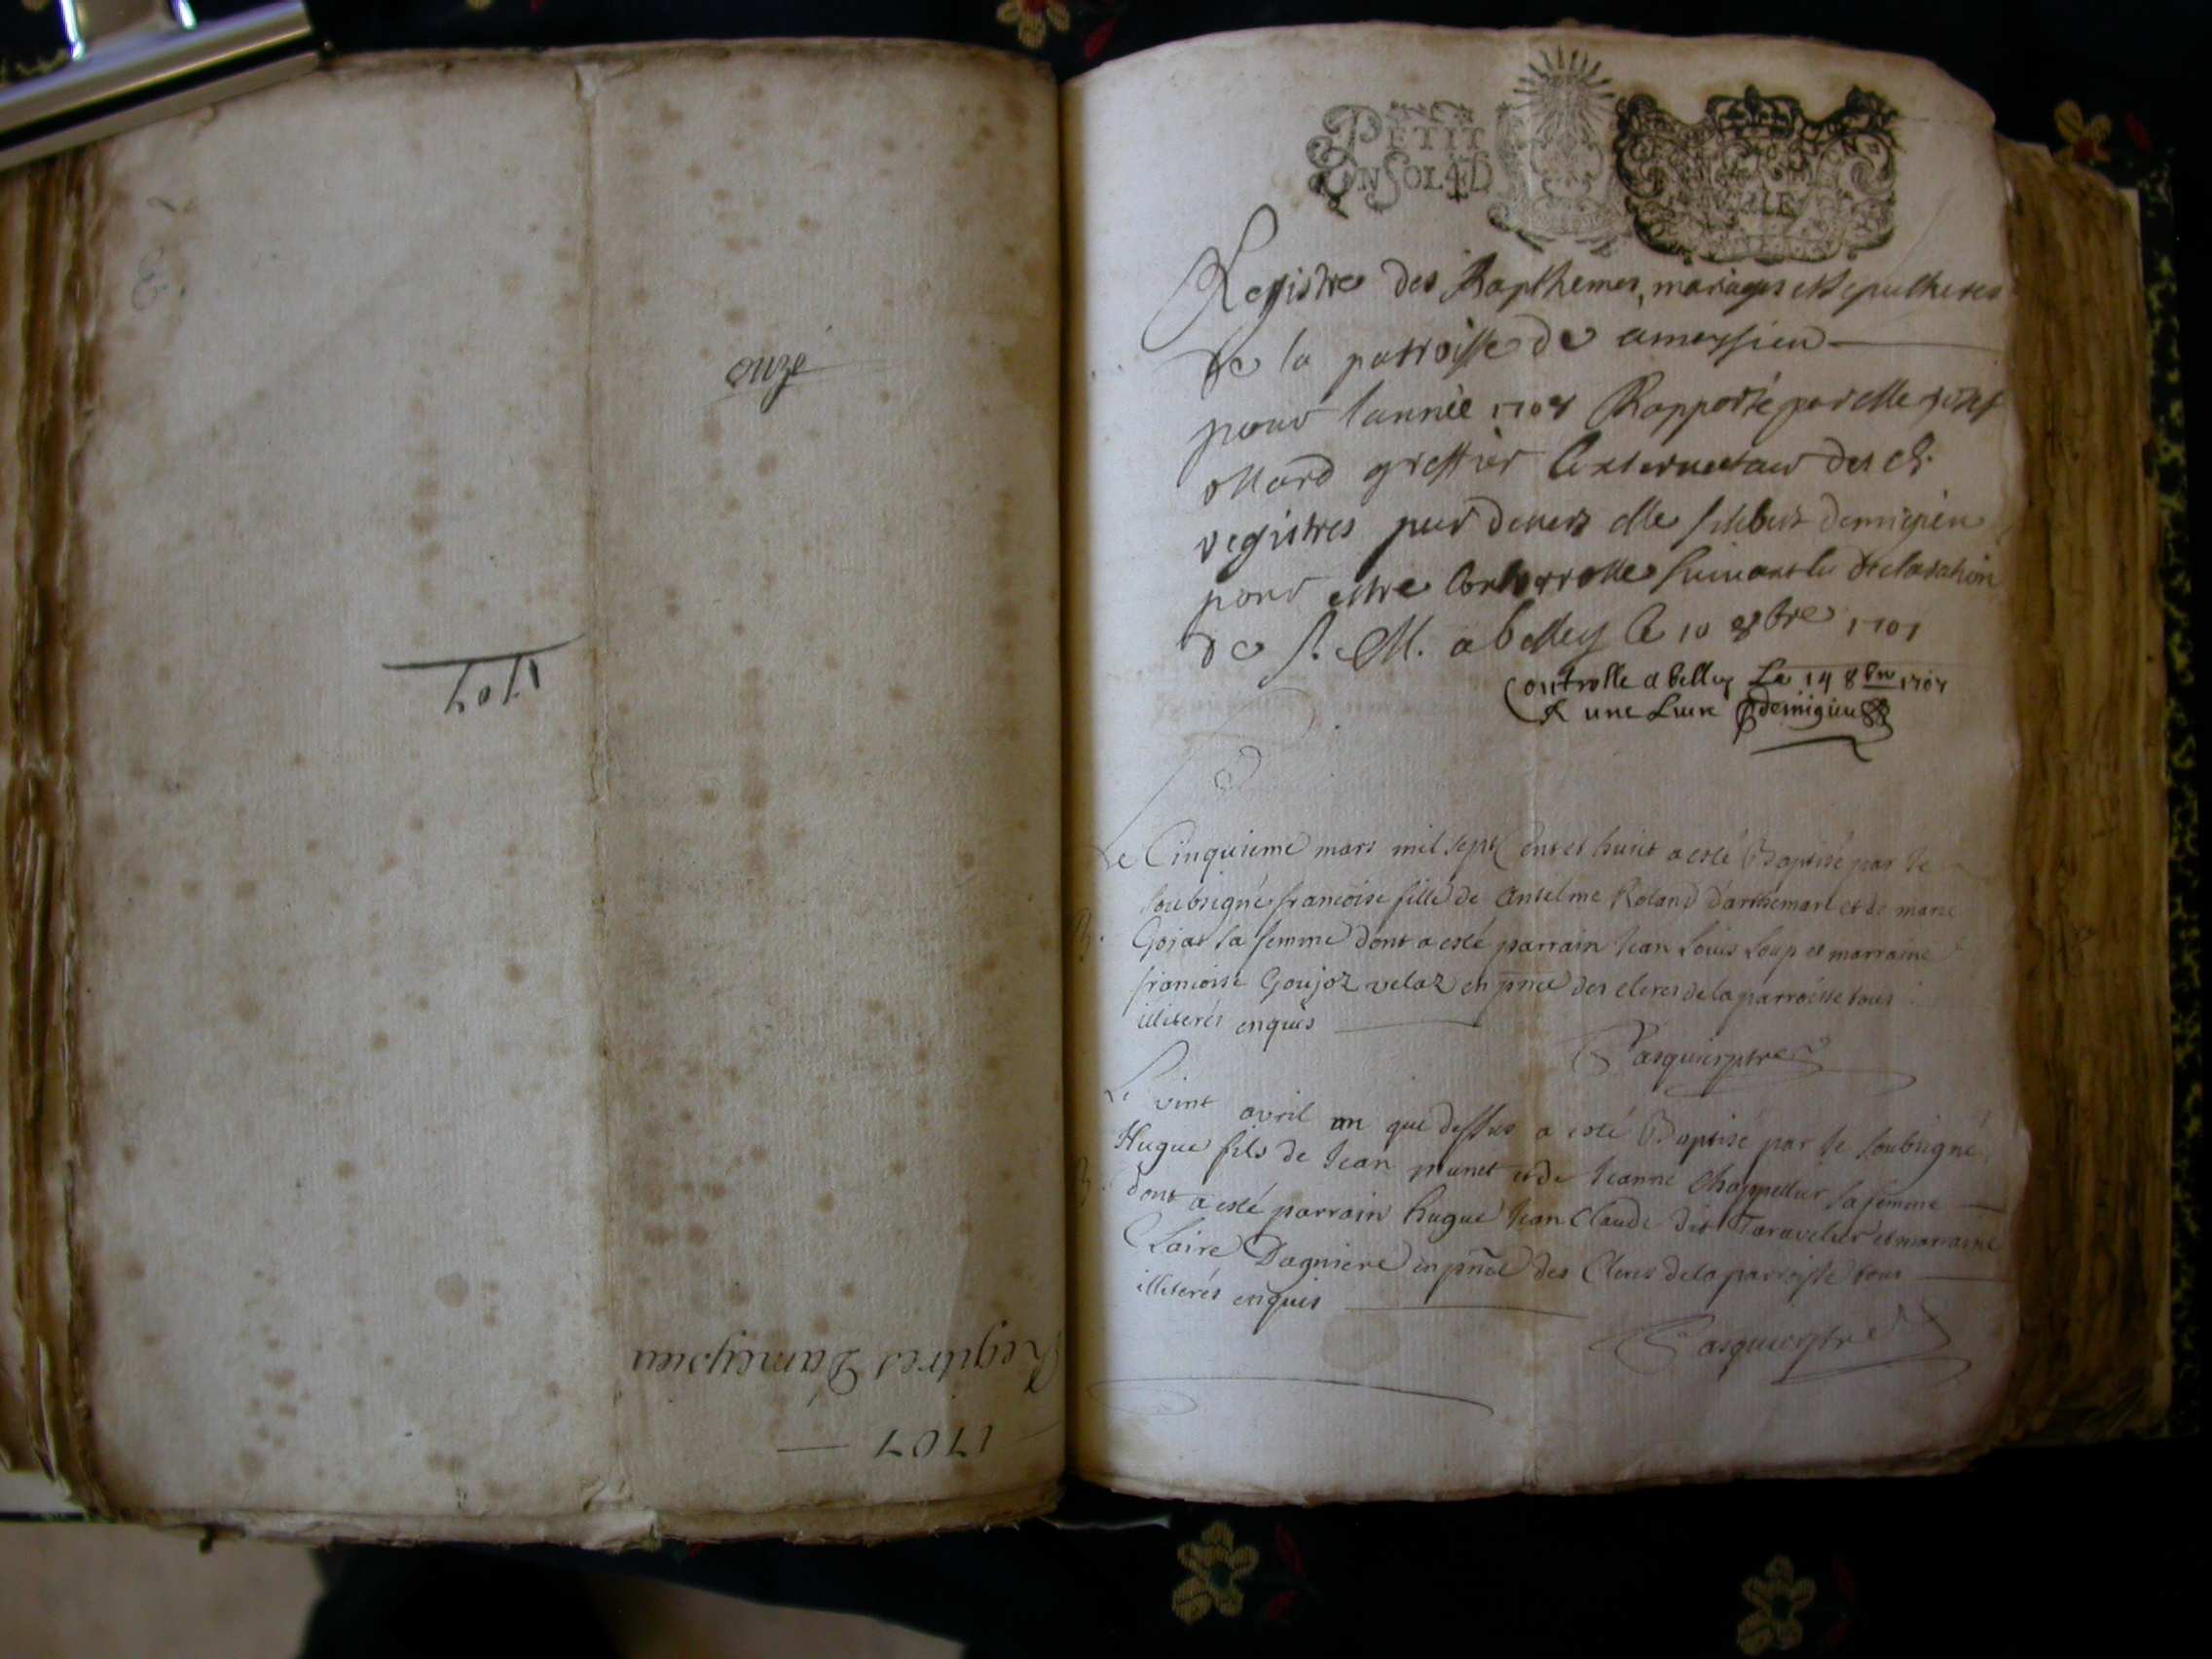 onze
1707
Registres Dameysieu
1707
PETIT
UN SOL 4 D
Registre des Bapthemes, mariages et sepultures
de la parroisse de ameysieu
pour lannèe 1708 Rapporté par
greffier Conservateur des
registres par devers demigieu
pour estre Controrolle suivant la declaration
de S. M. a belley le 10 8bre
Controlle a belley Le 14 8bre
R une Livre demigieu
Le Cinquieme mars mil sept Cent et huict a esté Baptisé par Je
soubsigné francoise fille de Antelme Roland d'arthemare et de marie
B. Gojat sa femme dont a esté parrain Jean Louis Loup et marraine
francoise Goujoz velaz en pnce des clercs de la parroisse tous
illiterés enquis
Pasquier ptre
Le vint avril an que dessus a esté Baptisé par Je soubsigné
Hugue fils de Jean et de Jeanne Chappellus sa femme
B. dont a esté parrain hugue Jean Claude dit et marraine
Claire Dagniere en pnce des Clercs de la parroisse tous
illiterés enquis
Pasquier ptre